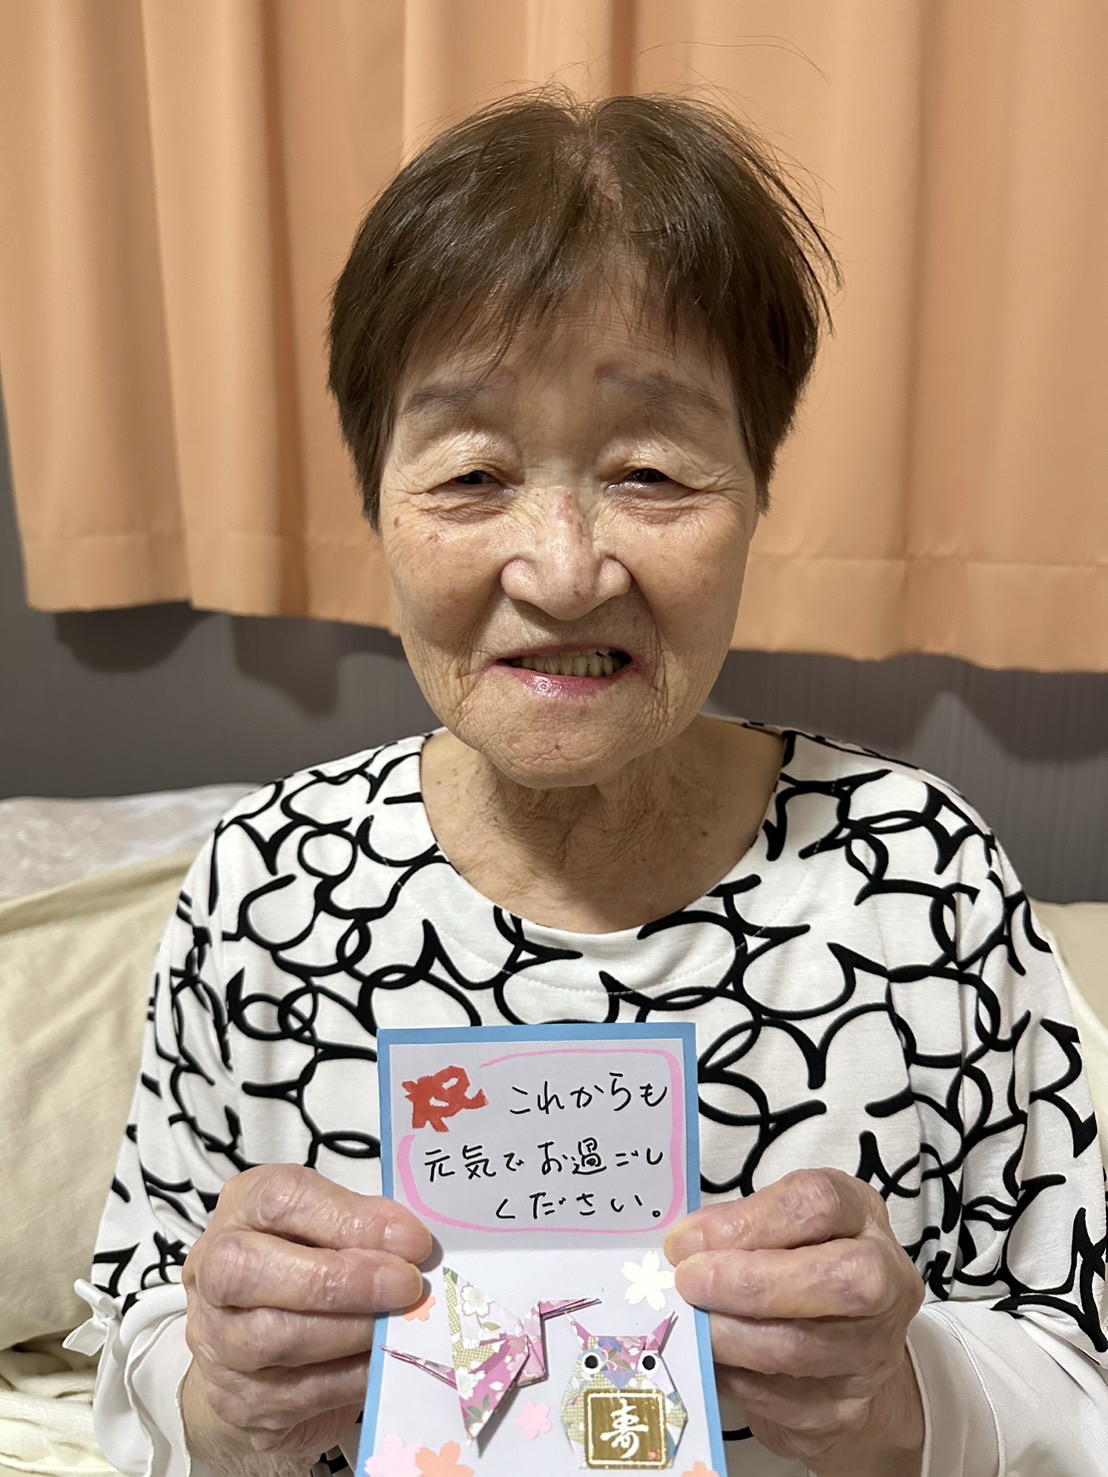 祝 これからも
元気でお過ごし
ください。
寿